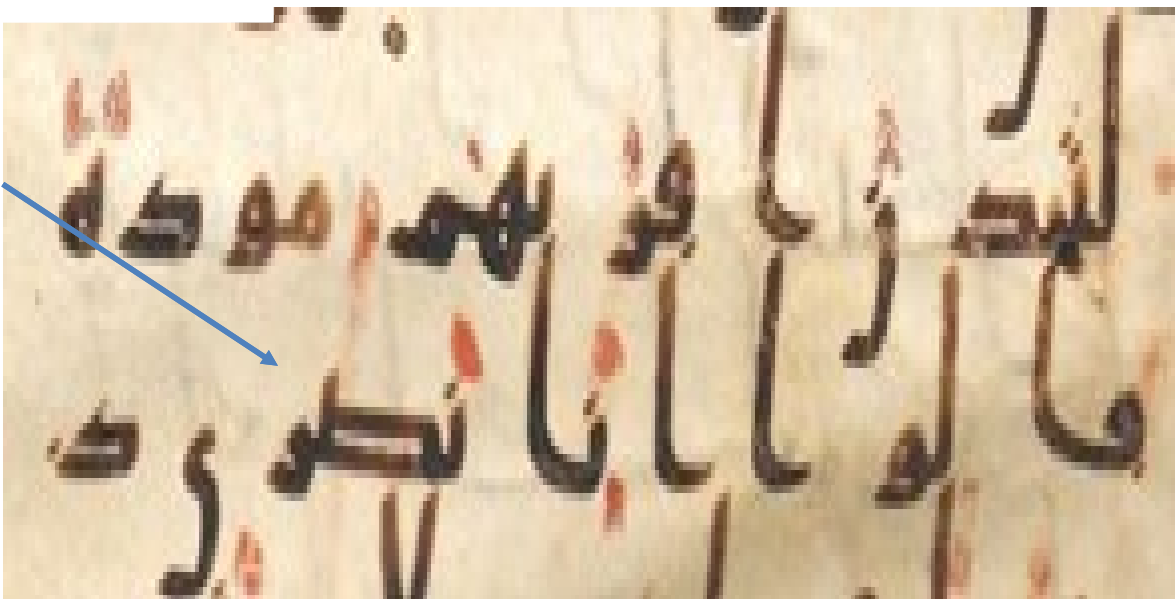 لتجدن اقربهم مودة
قالوا انا نصرى ذ